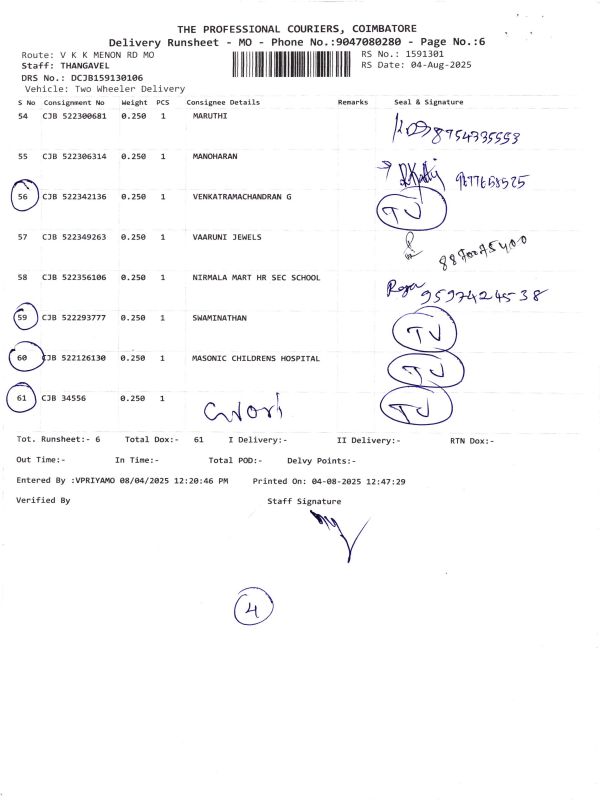 THE PROFESSIONAL COURIERS, COIMBATORE
Delivery Runsheet - MO - Phone No.:9047080280 - Page No.:6
Route: V K K MENON RD MO RS No.: 1591301
Staff: THANGAVEL RS Date: 04-Aug-2025
DRS No.: DCJB159130106
Vehicle: Two Wheeler Delivery
S No Consignment No Weight PCS Consignee Details Remarks Seal & Signature
54 CJB 522300681 0.250 1 MARUTHI 8754335553
55 CJB 522306314 0.250 1 MANOHARAN
56 CJB 522342136 0.250 1 VENKATRAMACHANDRAN G TV
57 CJB 522349263 0.250 1 VAARUNI JEWELS
58 CJB 522356106 0.250 1 NIRMALA MART HR SEC SCHOOL 9597424538
59 CJB 522293777 0.250 1 SWAMINATHAN TV
60 CJB 522126130 0.250 1 MASONIC CHILDRENS HOSPITAL TV
61 CJB 34556 0.250 1 TV
Tot. Runsheet:- 6 Total Dox:- 61 I Delivery:- II Delivery:- RTN Dox:-
Out Time:- In Time:- Total POD:- Delvy Points:-
Entered By :VPRIYAMO 08/04/2025 12:20:46 PM Printed On: 04-08-2025 12:47:29
Verified By Staff Signature
4